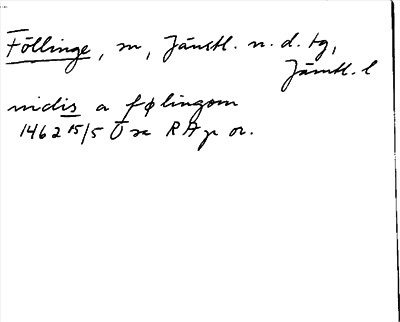 Föllinge, sn, Jämtl. n. d. tg,
Jämtl. l
nidis a føling​om
1462 15/5 Ö sx RAp or.